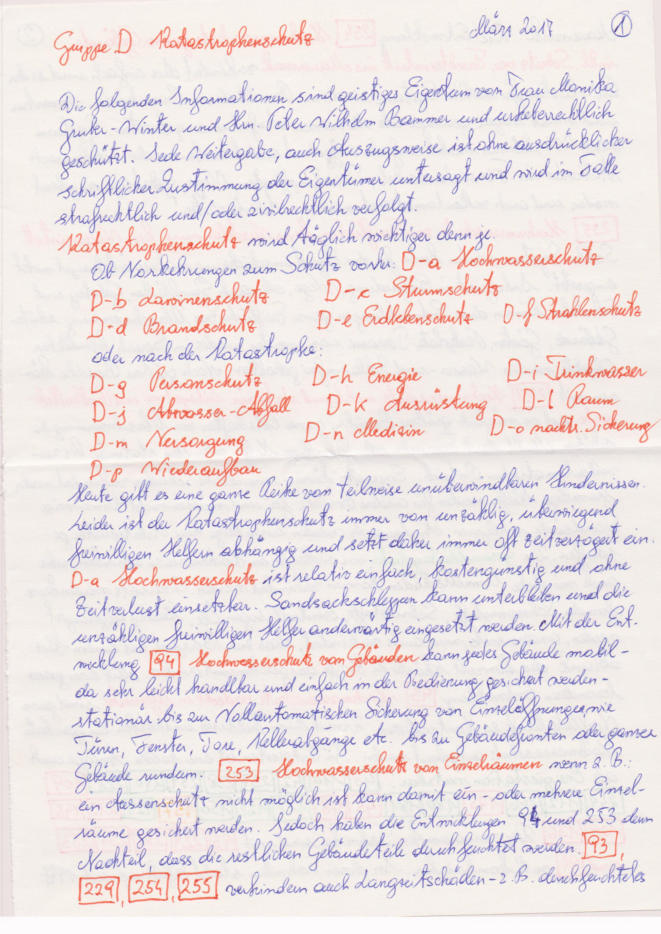 März 2017 1
Gruppe D Katastrophenschutz
Die folgenden Informationen sind geistiges Eigentum von Frau Monika
Gruber-Winter und Hrn. Peter Wilhelm Bammer und urheberrechtlich
geschützt. Jede Weitergabe, auch Auszugsweise ist ohne ausdrücklicher
schriftlicher Zustimmung der Eigentümer untersagt und wird im Falle
strafrechtlich und/oder zivilrechtlich verfolgt.
Katastrophenschutz wird täglich wichtiger denn je.
Ob Vorkehrungen zum Schutz vorher: D-a Hochwasserschutz
D-b Lawinenschutz D-c Sturmschutz
D-d Brandschutz D-e Erdbebenschutz D-f Strahlenschutz
oder nach der Katastrophe:
D-g Personschutz D-h Energie D-i Trinkwasser
D-j Abwasser-Abfall D-k Ausrüstung D-l Raum
D-m Versorgung D-n Medizin D-o nachtr. Sicherung
D-p Wiederaufbau
Heute gilt es eine ganze Reihe von teilweise unüberwindbaren Hindernissen.
Leider ist der Katastrophenschutz immer von unzählig, überwiegend
freiwilligen Helfern abhängig und setzt daher immer oft zeitverzögert ein.
D-a Hochwasserschutz ist relativ einfach, kostengünstig und ohne
Zeitverlust einsetzbar. Sandsackschleppen kann unterbleiben und die
unzähligen freiwilligen Helfer anderwärtig eingesetzt werden. Mit der Ent-
wicklung 94 Hochwasserschutz von Gebäuden kann jedes Gebäude mobil-
da sehr leicht handlbar und einfach in der Bedienung gesichert werden-
stationär bis zur Vollautomatischen Sicherung von Einzelöffnungen wie
Türen, Fenster, Tore, Kellerabgänge etc. bis zu Gebäudefronten oder ganzer
Gebäude rundum. 253 Hochwasserschutz von Einzelräumen wenn z.B.:
ein Aussenschutz nicht möglich ist kann damit ein- oder mehrere Einzel-
räume gesichert werden. Jedoch haben die Entwicklungen 94 und 253 den
Nachteil, dass die restlichen Gebäudeteile durchfeuchtet werden. 93,
229, 254, 255 verhindern auch Langzeitschäden - z.B. durchfeuchtetes